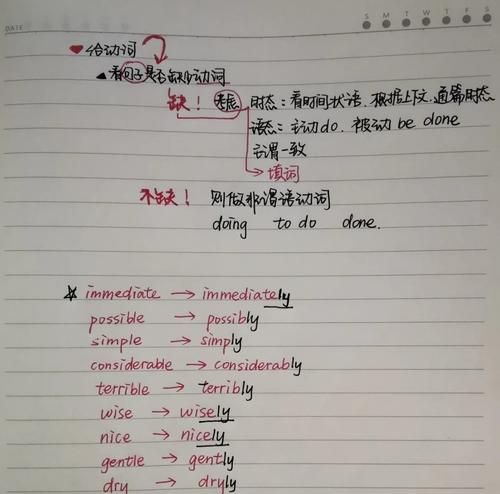 DATE
S M T W T F S
给动词
看句子是否缺少动词
缺！ 考虑 时态：看时间状语、根据上下文、通篇时态
语态：主动do、被动be done
主谓一致
填词
不缺！ 则做非谓语动词
doing to do done.
☆ immediate → immediately
possible → possibly
simple → simply
considerable → considerably
terrible → terribly
wise → wisely
nice → nicely
gentle → gently
dry → dryly